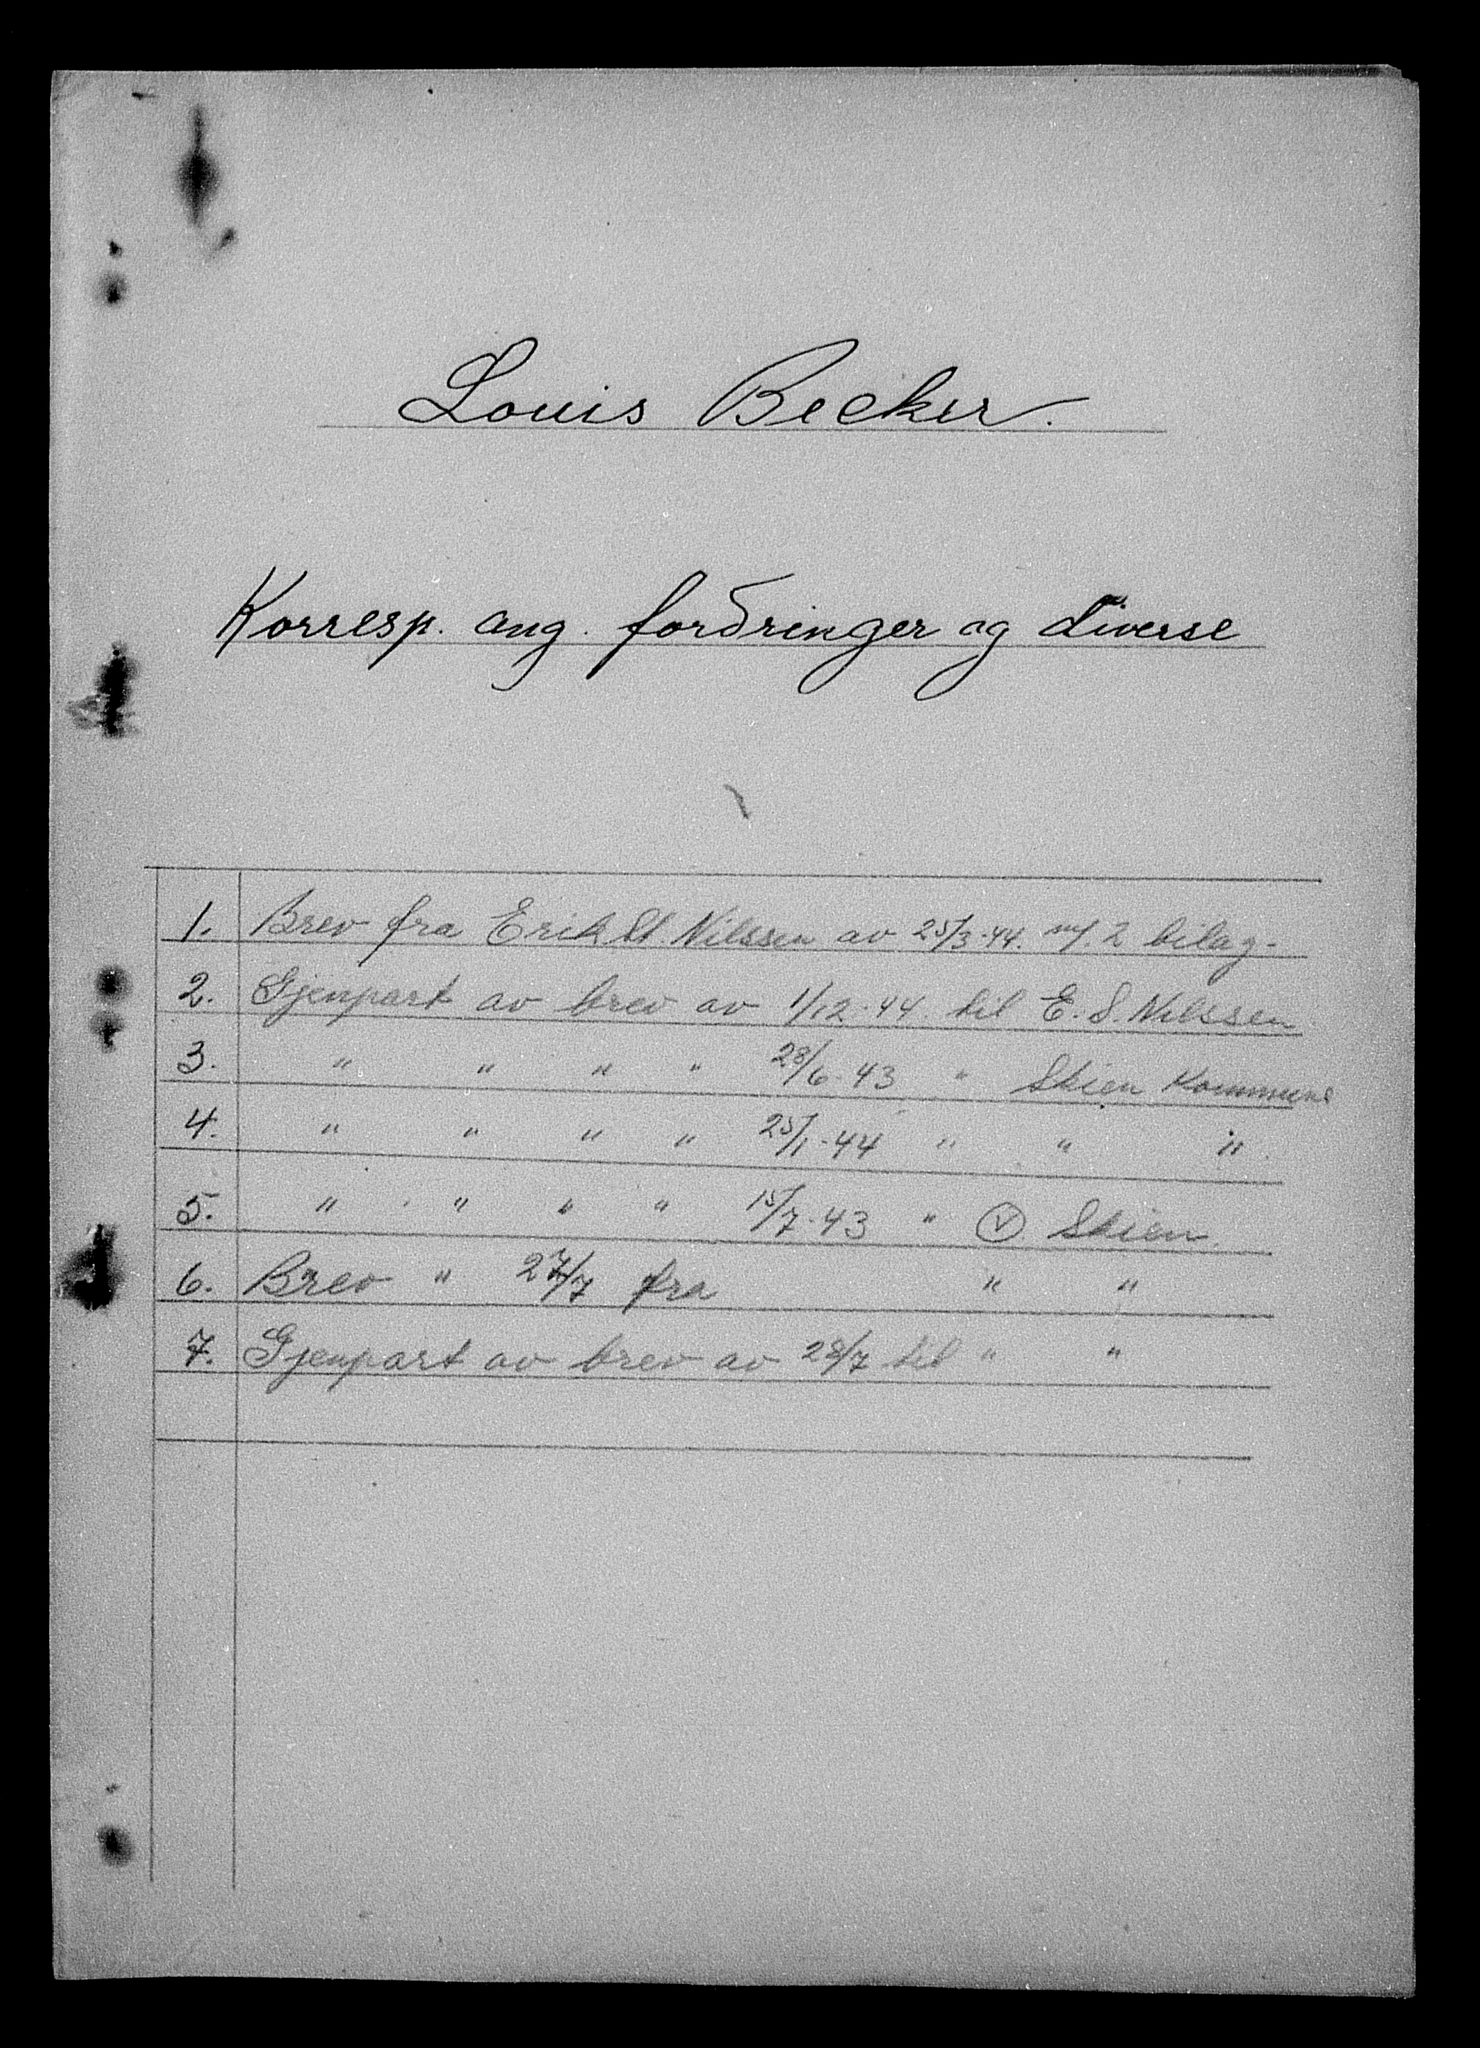 Louis Becker.
Korresp. ang. fordringer og diverse
1. Brev fra Erik St. Nilssen av 25/3-44. m/. 2 bilag-
2. Gjenpart av brev av 1/12-44. til E. S. Nilssen
3. " " " " 28/6-43 " Skien Kommune
4. " " " " 25/1-44 " " "
5. " " " " 15/7-43 " V Skien.
6. Brev " 27/7 fra " "
7. Gjenpart av brev av 28/7 til " "